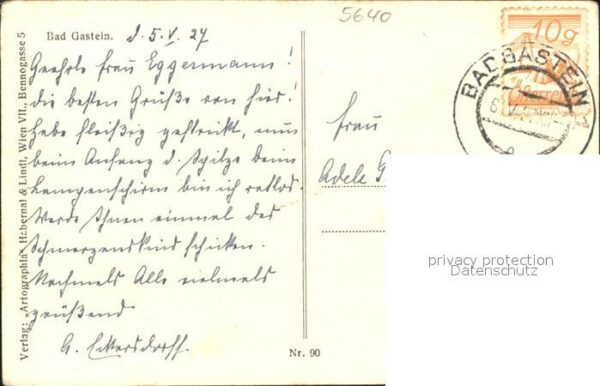 5640
Bad Gastein. d. 5. V. 27
Geehrte Frau Eggermann!
die besten Grüße von hier!
Habe fleißig gestrickt, nun
beim Anfang d. Spitze beim
Lampenschirm bin ich ratlos.
Werde Ihnen einmal das
Schmerzenskind schicken.
Nochmals Alle vielmals
grüßend
G. Eckersdorff.
Verlag: „Artographia" Habernal & Lindl, Wien VII., Bennogasse 5
Nr. 90
10g
Österreich
BADGASTEIN
Frau
Adele
privacy protection
Datenschutz